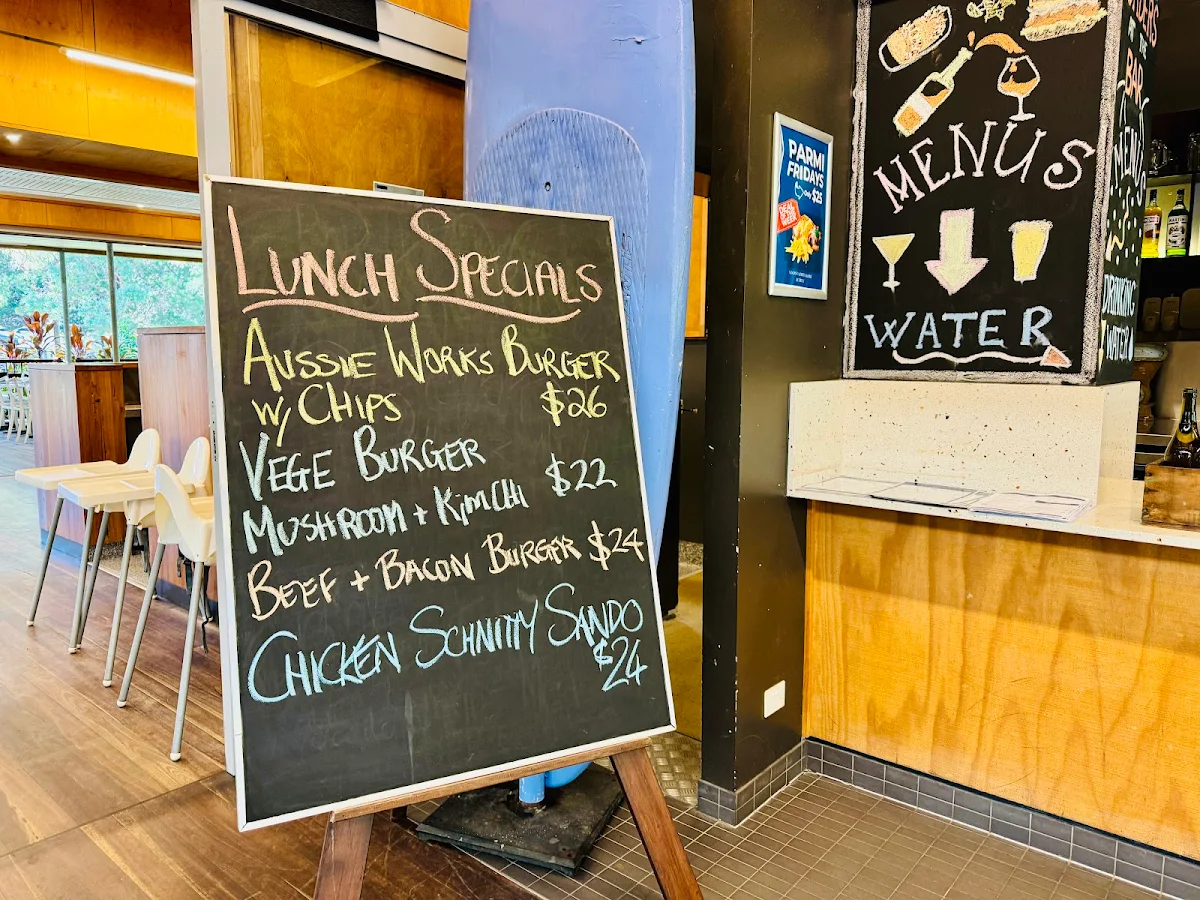 LUNCH SPECIALS
AUSSIE WORKS BURGER
W/ CHIPS $26
VEGE BURGER
MUSHROOM + KIMCHI $22
BEEF + BACON BURGER $24
CHICKEN SCHNITTY SANDO
$24
PARMI
FRIDAYS
$25
DEAL
MENUS
WATER
BAR
MENUS
DRINKING
WATER